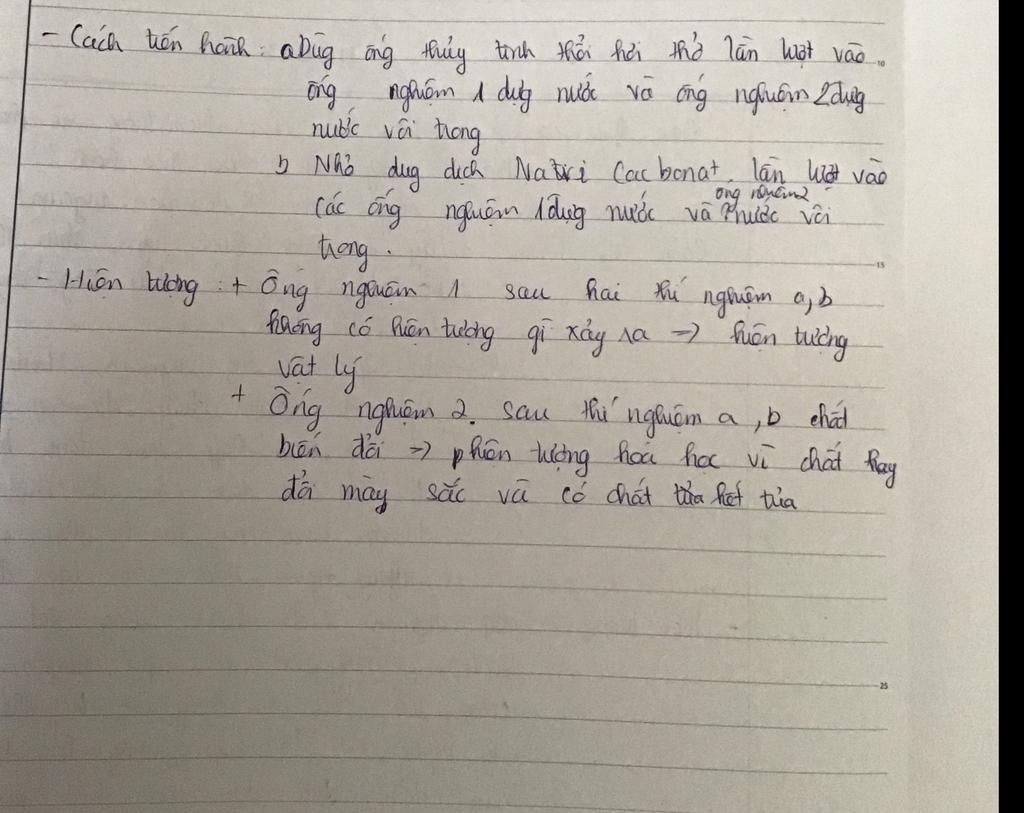 - Cách tiến hành: a Dùg ống thủy tinh thổi hơi thở lần lượt vào
10
ống nghiệm 1 đựg nước và ống nghiệm 2 đựg
nước vôi trong
b Nhỏ dug dịch Natri Cacbonat lần lượt vào
ống nghiệm 2
các ống nghiệm 1 đựg nước và nước vôi
trong.
15
- Hiện tượng: + Ống nghiệm 1 sau hai thí nghiệm a, b
không có hiện tượng gì xảy ra => hiện tượng
vật lý
+ Ống nghiệm 2. sau thí nghiệm a, b chất
biến đổi => hiện tượng hoá học vì chất thay
đổi mày sắc và có chất kết tủa
25